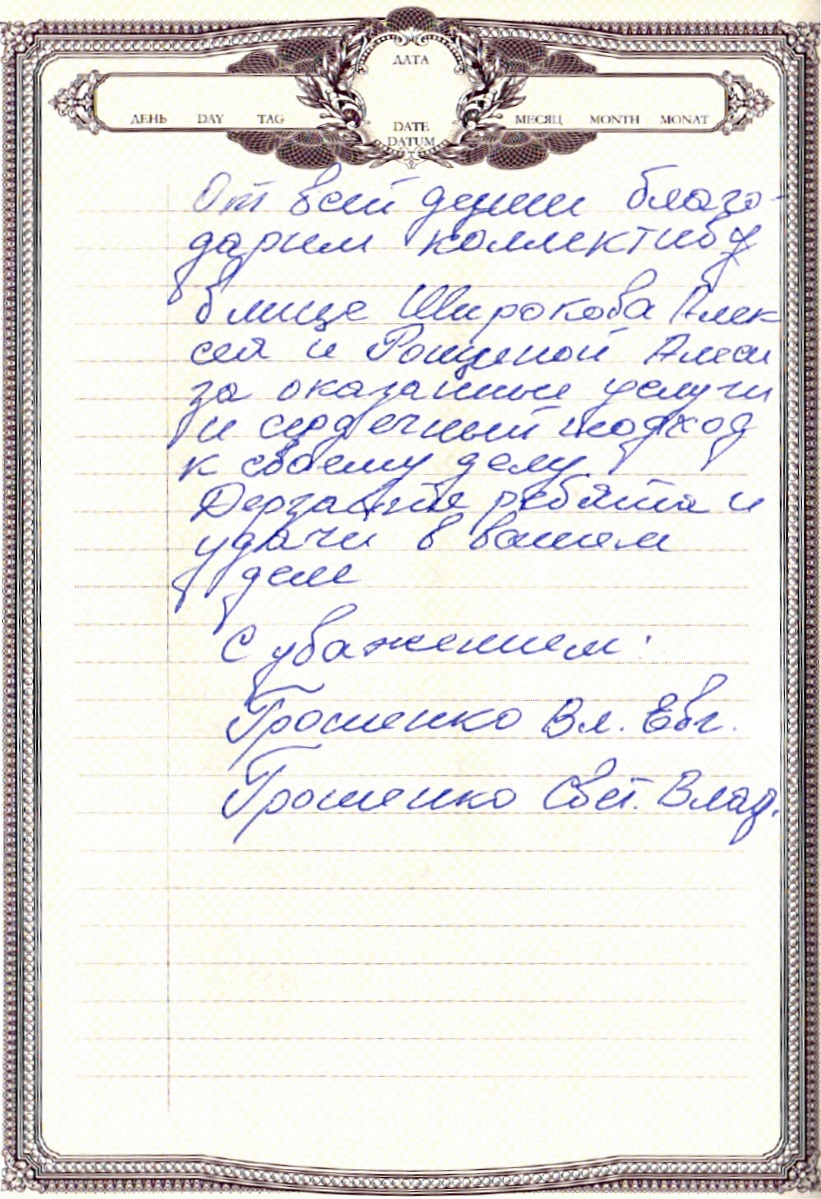 ДАТА
ДЕНЬ DAY TAG DATE МЕСЯЦ MONTH MONAT
DATUM
От всей души благо-
дарим коллективу
в лице Широкова Алек
сея и Рощеной Алеси
за оказанные услуги
и сердечный подход
к своему делу
Дерзайте ребята и
удачи в вашем
деле
С уважением:
Трошенко Вл. Евг.
Трошенко Свет. Влад.